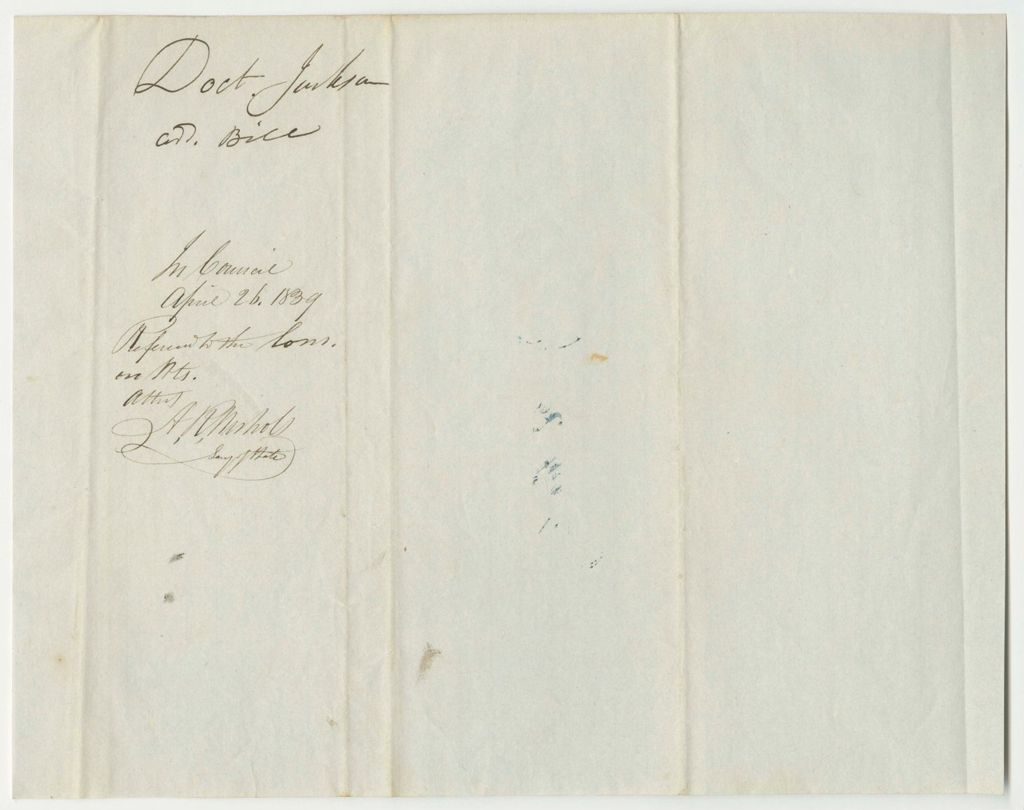 Doct. Jackson
add. Bill
In Council
April 26. 1839
Referred to the Com.
on Wts.
Attest
A. R. Nichols
Secy of State